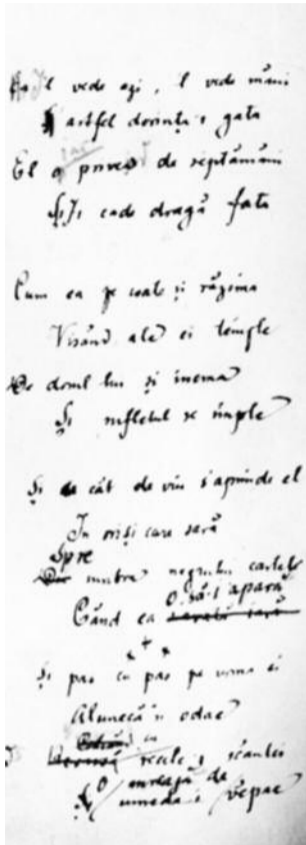 Îl vede azi, îl vede mâni
Astfel dorința-i gata
El o privește de săptămâni
Și-i cade dragă fata
Cum ea pe coate își răzima
Visând ale ei tâmple
De dorul lui și inema
Și sufletul se împle
Și cât de viu s'aprinde el
În oriși care sară
Spre umbra negrului castel
Când ea o să-i apară
* * *
Și pas cu pas pe urma ei
Alunecă 'n odae
cu recele-i scântei
O mreajă de văpae